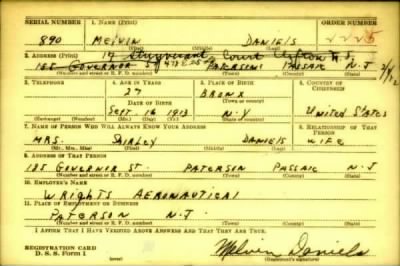 SERIAL NUMBER 1. NAME (Print) ORDER NUMBER
890 MELVIN DANIELS 2225
(First) (Middle) (Last)
14 Stuyvesant Court Clifton N.J.
2. ADDRESS (Print)
185 GOVERNOR ST PATERSON PASSAIC N.J
(Number and street or R. F. D. number) (Town) (County) (State)
3. TELEPHONE 4. AGE IN YEARS 5. PLACE OF BIRTH 6. COUNTRY OF CITIZENSHIP
27 BRONX
DATE OF BIRTH (Town or county)
Sept. 16 1913 N.Y United States
(Exchange) (Number) (Mo.) (Day) (Yr.) (State or country)
7. NAME OF PERSON WHO WILL ALWAYS KNOW YOUR ADDRESS 8. RELATIONSHIP OF THAT PERSON
MRS. SHIRLEY DANIELS WIFE
(Mr., Mrs., Miss) (First) (Middle) (Last)
9. ADDRESS OF THAT PERSON
185 GOVERNOR ST. PATERSON PASSAIC N.J
(Number and street or R. F. D. number) (Town) (County) (State)
10. EMPLOYER'S NAME
WRIGHTS AERONAUTICAL
11. PLACE OF EMPLOYMENT OR BUSINESS
PATERSON N.J.
(Number and street or R. F. D. number) (Town) (County) (State)
I AFFIRM THAT I HAVE VERIFIED ABOVE ANSWERS AND THAT THEY ARE TRUE.
REGISTRATION CARD
D. S. S. Form 1 (over) Melvin Daniels
(Registrant's signature)